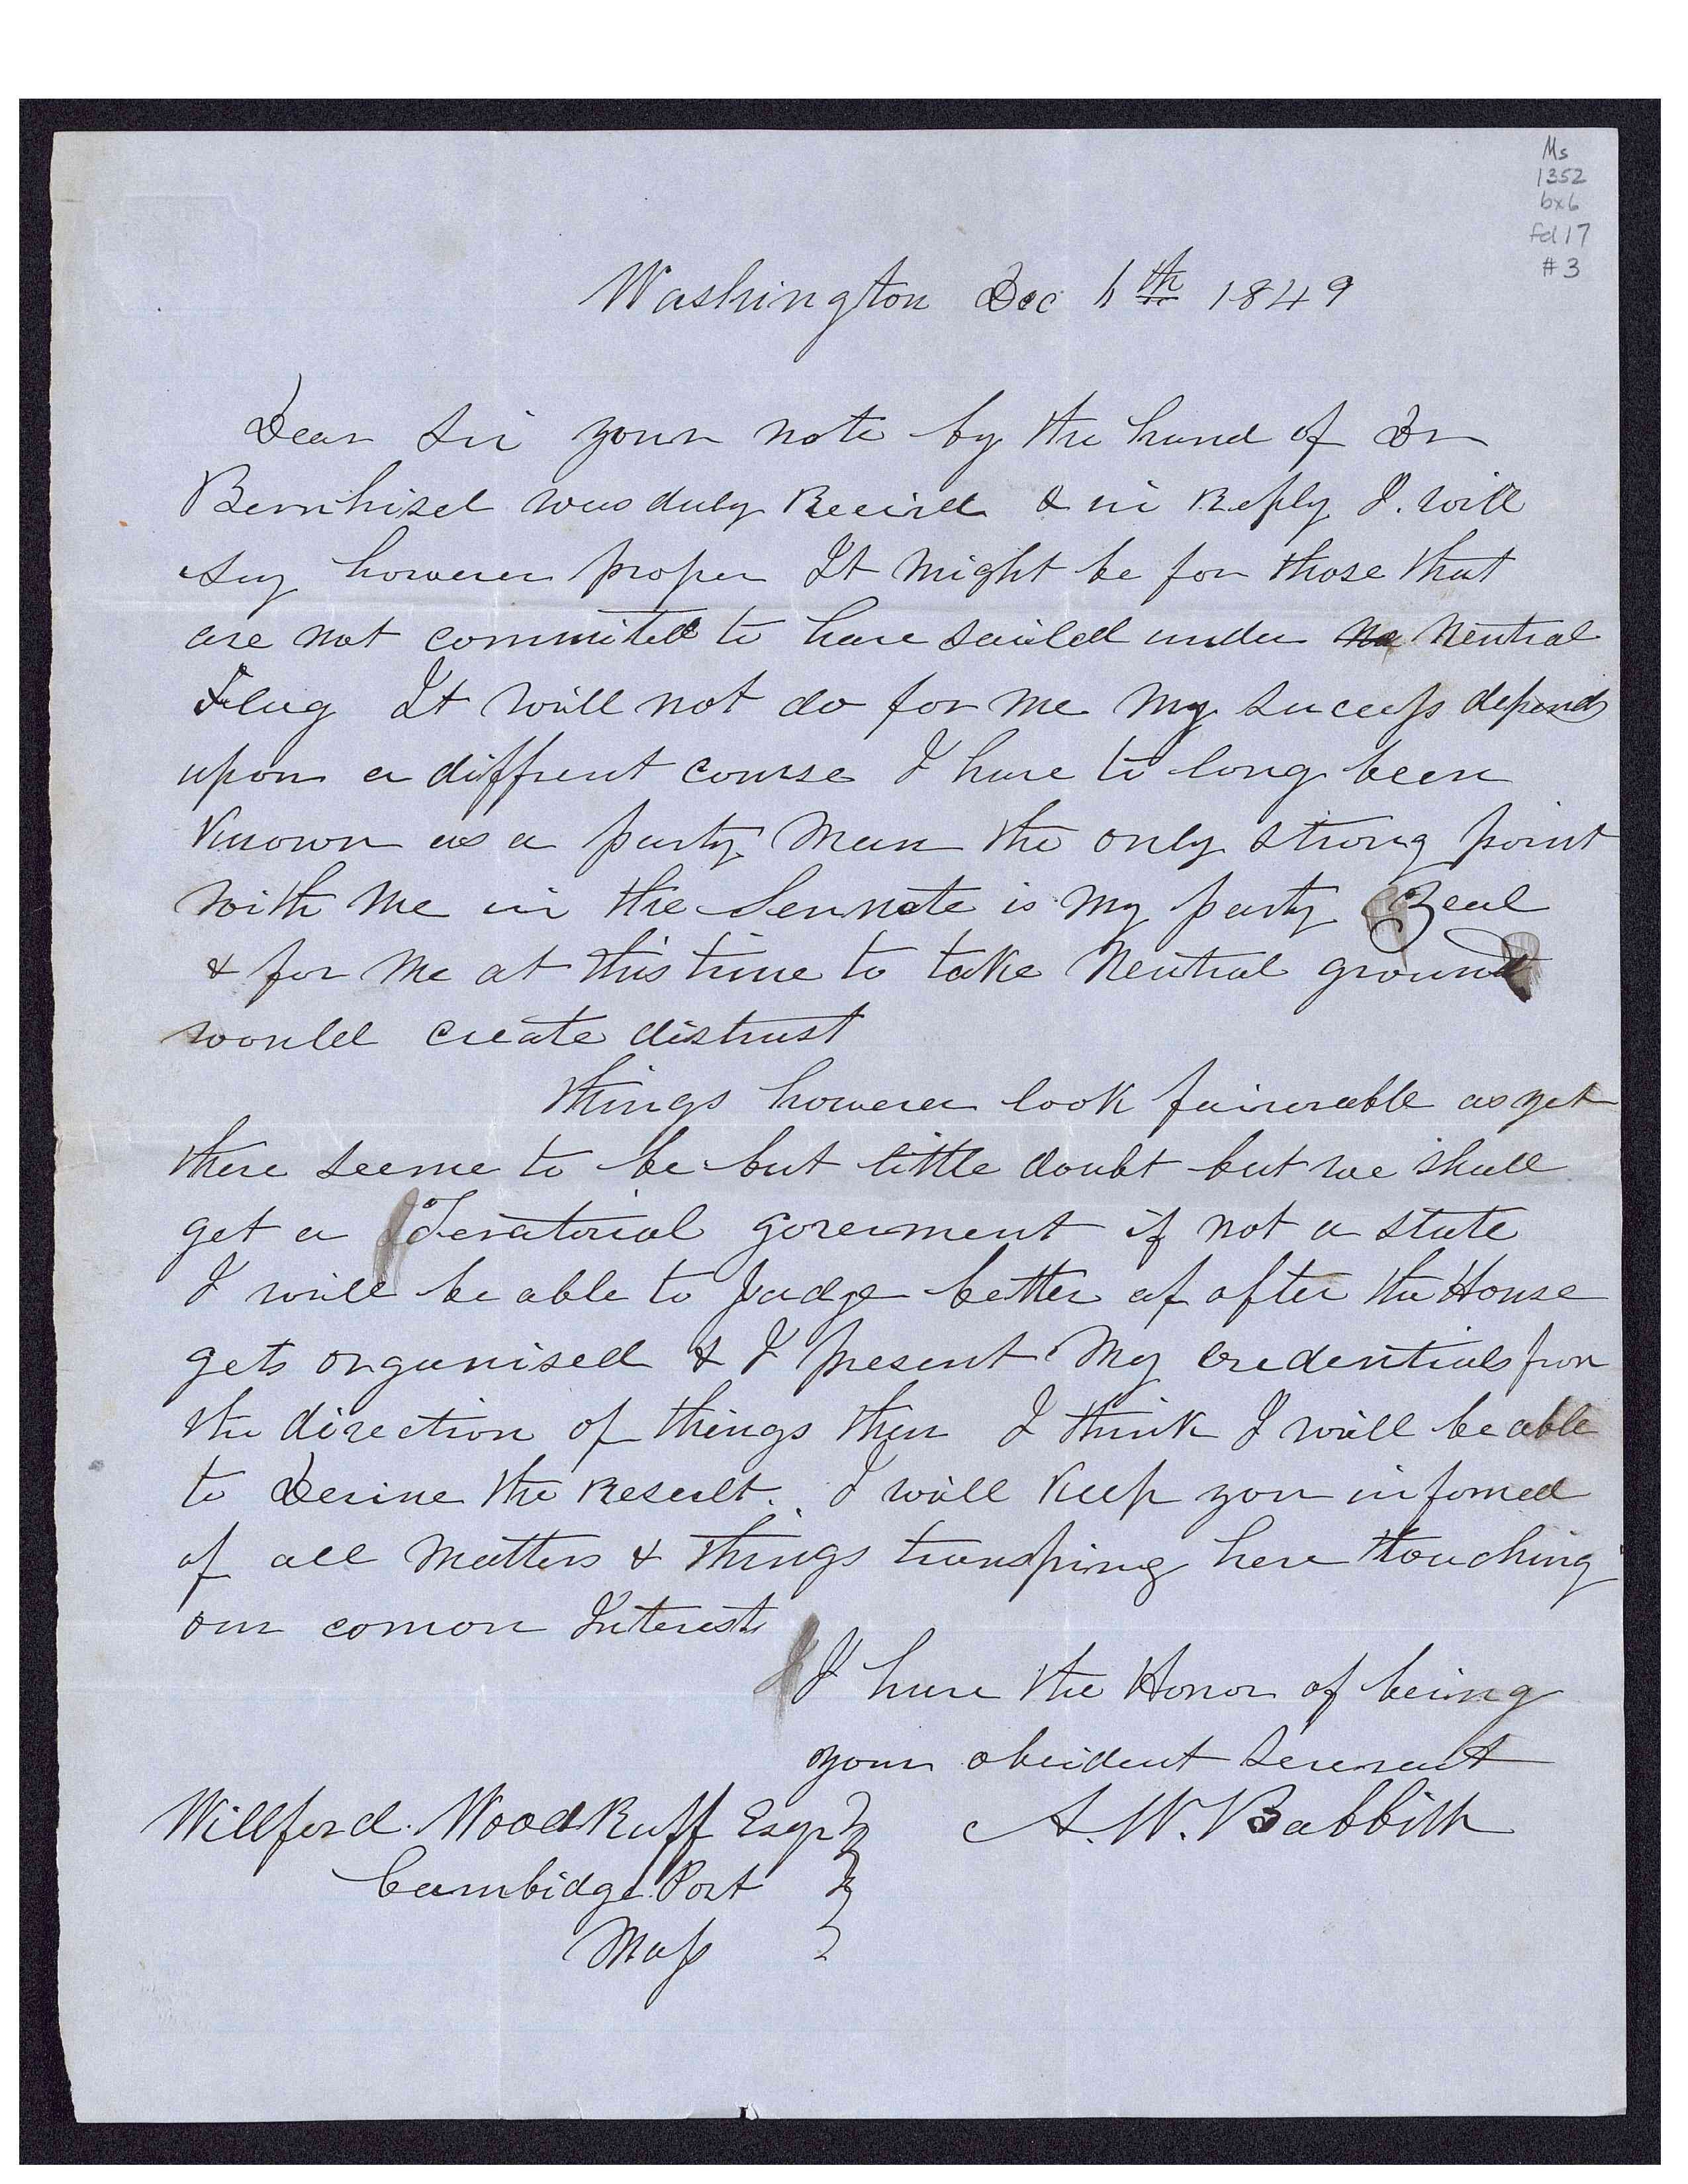 Ms
1352
bx6
fd 17
#3
Washington Dec 6th 1849
Dear Sir your note by the hand of Dr
Bernhisel was duly Recived & in Reply I will
say however proper It might be for those that
are not commited to have sailed under Neutral
Flag It will not do for me my success depends
upon a diffrent course I have to long been
Known as a party man the only strong point
with me in the Sennate is my party Zeal
& for me at this time to take Neutral ground
would create distrust
things however look faivorable as yet
there seeme to be but little doubt but we shall
get a Teratorial goverment if not a state
I will be able to Judge better af after the House
gets organised & I present my credentials from
the direction of things then I think I will be able
to Devine the Reselt. I will Keep you infomed
of all matters & things transpiring here touching
our comon Interests
I have the Honor of being
your obeident servant
A. W. Babbitt
Willford. WoodRuff Esqr
Cambidge Port
Mass